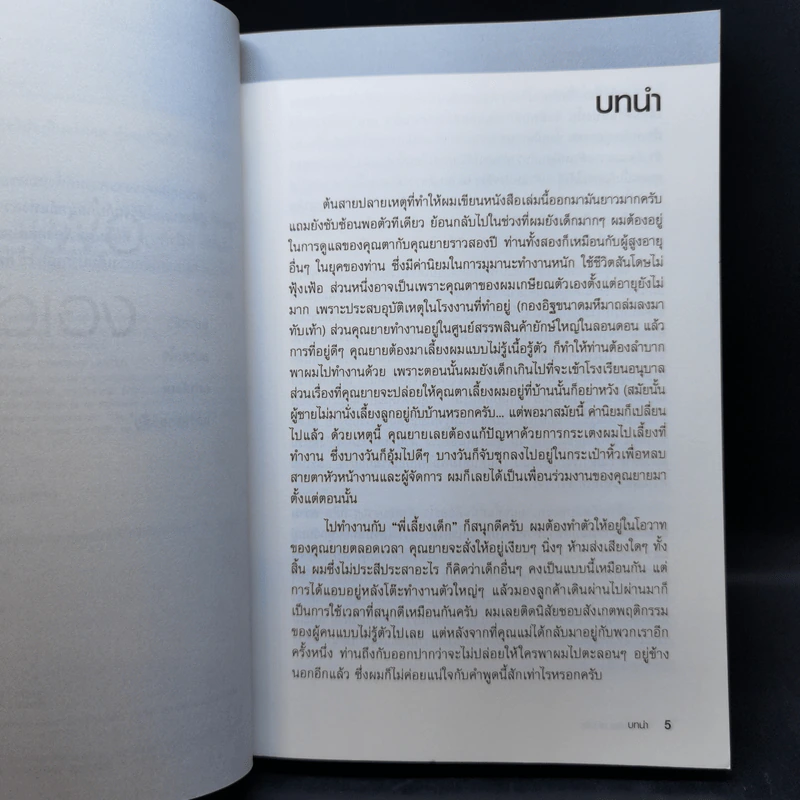 บทนำ
ต้นสายปลายเหตุที่ทำให้ผมเขียนหนังสือเล่มนี้ออกมามันยาวมากครับ
แถมยังซับซ้อนพอตัวทีเดียว ย้อนกลับไปในช่วงที่ผมยังเด็กมากๆ ผมต้องอยู่
ในการดูแลของคุณตากับคุณยายราวสองปี ท่านทั้งสองก็เหมือนกับผู้สูงอายุ
อื่นๆ ในยุคของท่าน ซึ่งมีค่านิยมในการมุมานะทำงานหนัก ใช้ชีวิตสันโดษไม่
ฟุ้งเฟ้อ ส่วนหนึ่งอาจเป็นเพราะคุณตาของผมเกษียณตัวเองตั้งแต่อายุยังไม่
มาก เพราะประสบอุบัติเหตุในโรงงานที่ทำอยู่ (กองอิฐขนาดมหึมาถล่มลงมา
ทับเท้า) ส่วนคุณยายทำงานอยู่ในศูนย์สรรพสินค้ายักษ์ใหญ่ในลอนดอน แล้ว
การที่อยู่ดีๆ คุณยายต้องมาเลี้ยงผมแบบไม่รู้เนื้อรู้ตัว ก็ทำให้ท่านต้องลำบาก
พาผมไปทำงานด้วย เพราะตอนนั้นผมยังเด็กเกินไปที่จะเข้าโรงเรียนอนุบาล
ส่วนเรื่องที่คุณยายจะปล่อยให้คุณตาเลี้ยงผมอยู่ที่บ้านนั้นก็อย่าหวัง (สมัยนั้น
ผู้ชายไม่มานั่งเลี้ยงลูกอยู่กับบ้านหรอกครับ... แต่พอมาสมัยนี้ ค่านิยมก็เปลี่ยน
ไปแล้ว ด้วยเหตุนี้ คุณยายเลยต้องแก้ปัญหาด้วยการกระเตงผมไปเลี้ยงที่
ทำงาน ซึ่งบางวันก็อุ้มไปดีๆ บางวันก็จับซุกลงไปอยู่ในกระเป๋าหิ้วเพื่อหลบ
สายตาหัวหน้างานและผู้จัดการ ผมก็เลยได้เป็นเพื่อนร่วมงานของคุณยายมา
ตั้งแต่ตอนนั้น
ไปทำงานกับ “พี่เลี้ยงเด็ก” ก็สนุกดีครับ ผมต้องทำตัวให้อยู่ในโอวาท
ของคุณยายตลอดเวลา คุณยายจะสั่งให้อยู่เงียบๆ นิ่งๆ ห้ามส่งเสียงใดๆ ทั้ง
สิ้น ผมซึ่งไม่ประสีประสาอะไร ก็คิดว่าเด็กอื่นๆ คงเป็นแบบนี้เหมือนกัน แต่
การได้แอบอยู่หลังโต๊ะทำงานตัวใหญ่ๆ แล้วมองลูกค้าเดินผ่านไปผ่านมาก็
เป็นการใช้เวลาที่สนุกดีเหมือนกันครับ ผมเลยติดนิสัยชอบสังเกตพฤติกรรม
ของผู้คนแบบไม่รู้ตัวไปเลย แต่หลังจากที่คุณแม่ได้กลับมาอยู่กับพวกเราอีก
ครั้งหนึ่ง ท่านถึงกับออกปากว่าจะไม่ปล่อยให้ใครพาผมไปตะลอนๆ อยู่ข้าง
นอกอีกแล้ว ซึ่งผมก็ไม่ค่อยแน่ใจกับคำพูดนี้สักเท่าไรหรอกครับ
บทนำ 5